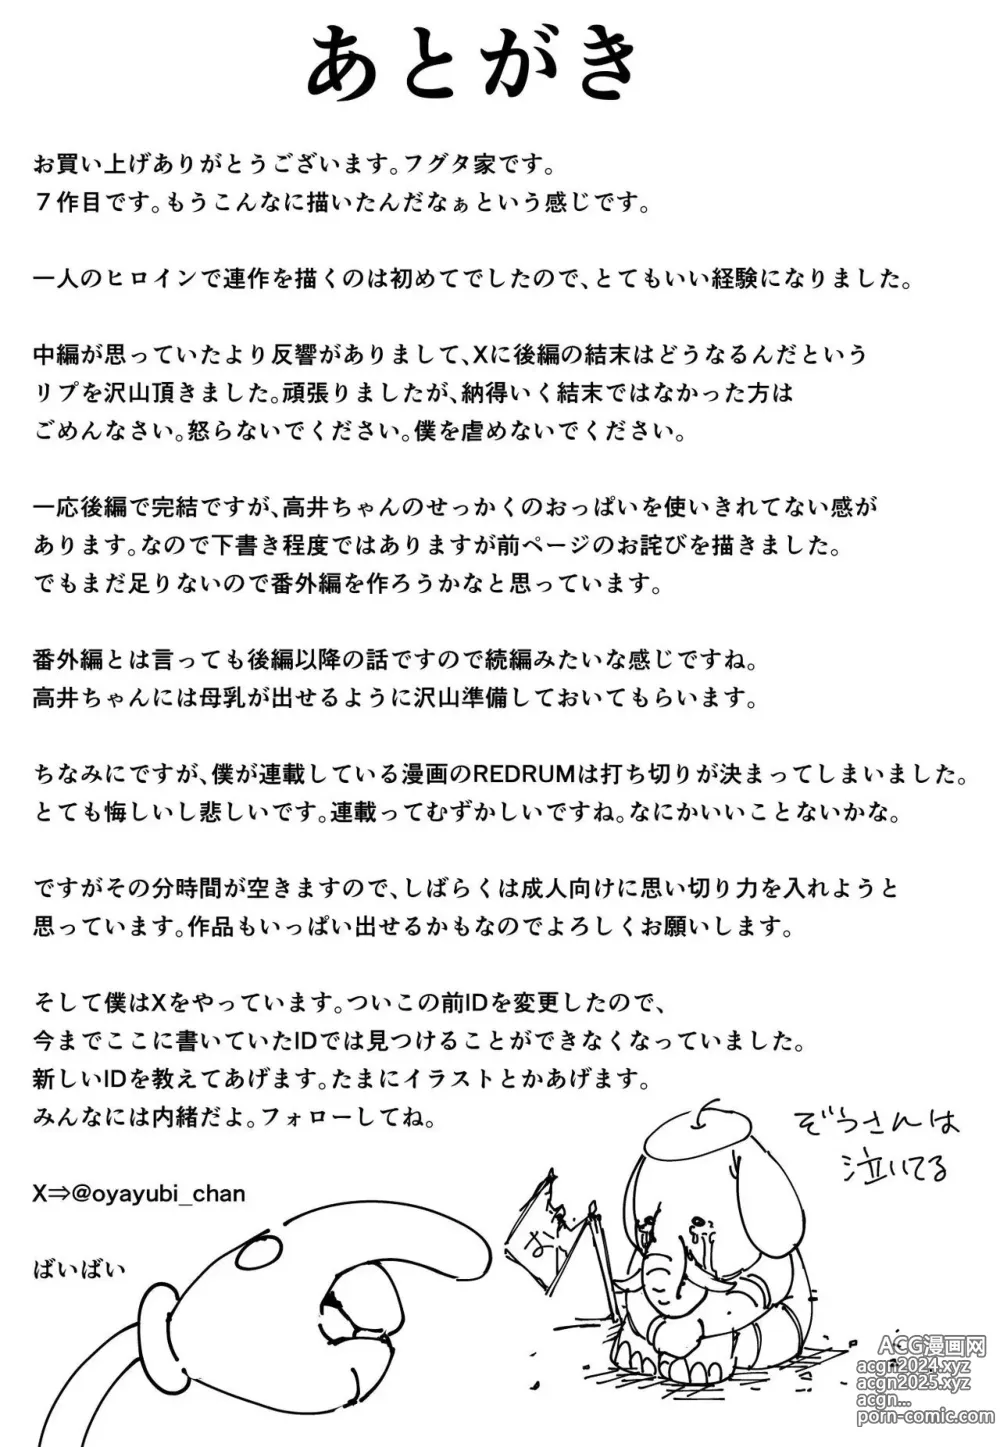 あとがき
お買い上げありがとうございます。フグタ家です。
７作目です。もうこんなに描いたんだなぁという感じです。
一人のヒロインで連作を描くのは初めてでしたので、とてもいい経験になりました。
中編が思っていたより反響がありまして、Xに後編の結末はどうなるんだという
リプを沢山頂きました。頑張りましたが、納得いく結末ではなかった方は
ごめんなさい。怒らないでください。僕を虐めないでください。
一応後編で完結ですが、高井ちゃんのせっかくのおっぱいを使いきれてない感が
あります。なので下書き程度ではありますが前ページのお詫びを描きました。
でもまだ足りないので番外編を作ろうかなと思っています。
番外編とは言っても後編以降の話ですので続編みたいな感じですね。
高井ちゃんには母乳が出せるように沢山準備しておいてもらいます。
ちなみにですが、僕が連載している漫画のREDRUMは打ち切りが決まってしまいました。
とても悔しいし悲しいです。連載ってむずかしいですね。なにかいいことないかな。
ですがその分時間が空きますので、しばらくは成人向けに思い切り力を入れようと
思っています。作品もいっぱい出せるかもなのでよろしくお願いします。
そして僕はXをやっています。ついこの前IDを変更したので、
今までここに書いていたIDでは見つけることができなくなっていました。
新しいIDを教えてあげます。たまにイラストとかあげます。
みんなには内緒だよ。フォローしてね。
ぞうさんは
泣いてる
X⇒@oyayubi_chan
お
ばいばい
ACG漫画网
acgn2024.xyz
acgn2025.xyz
acgn...
porn-comic.com